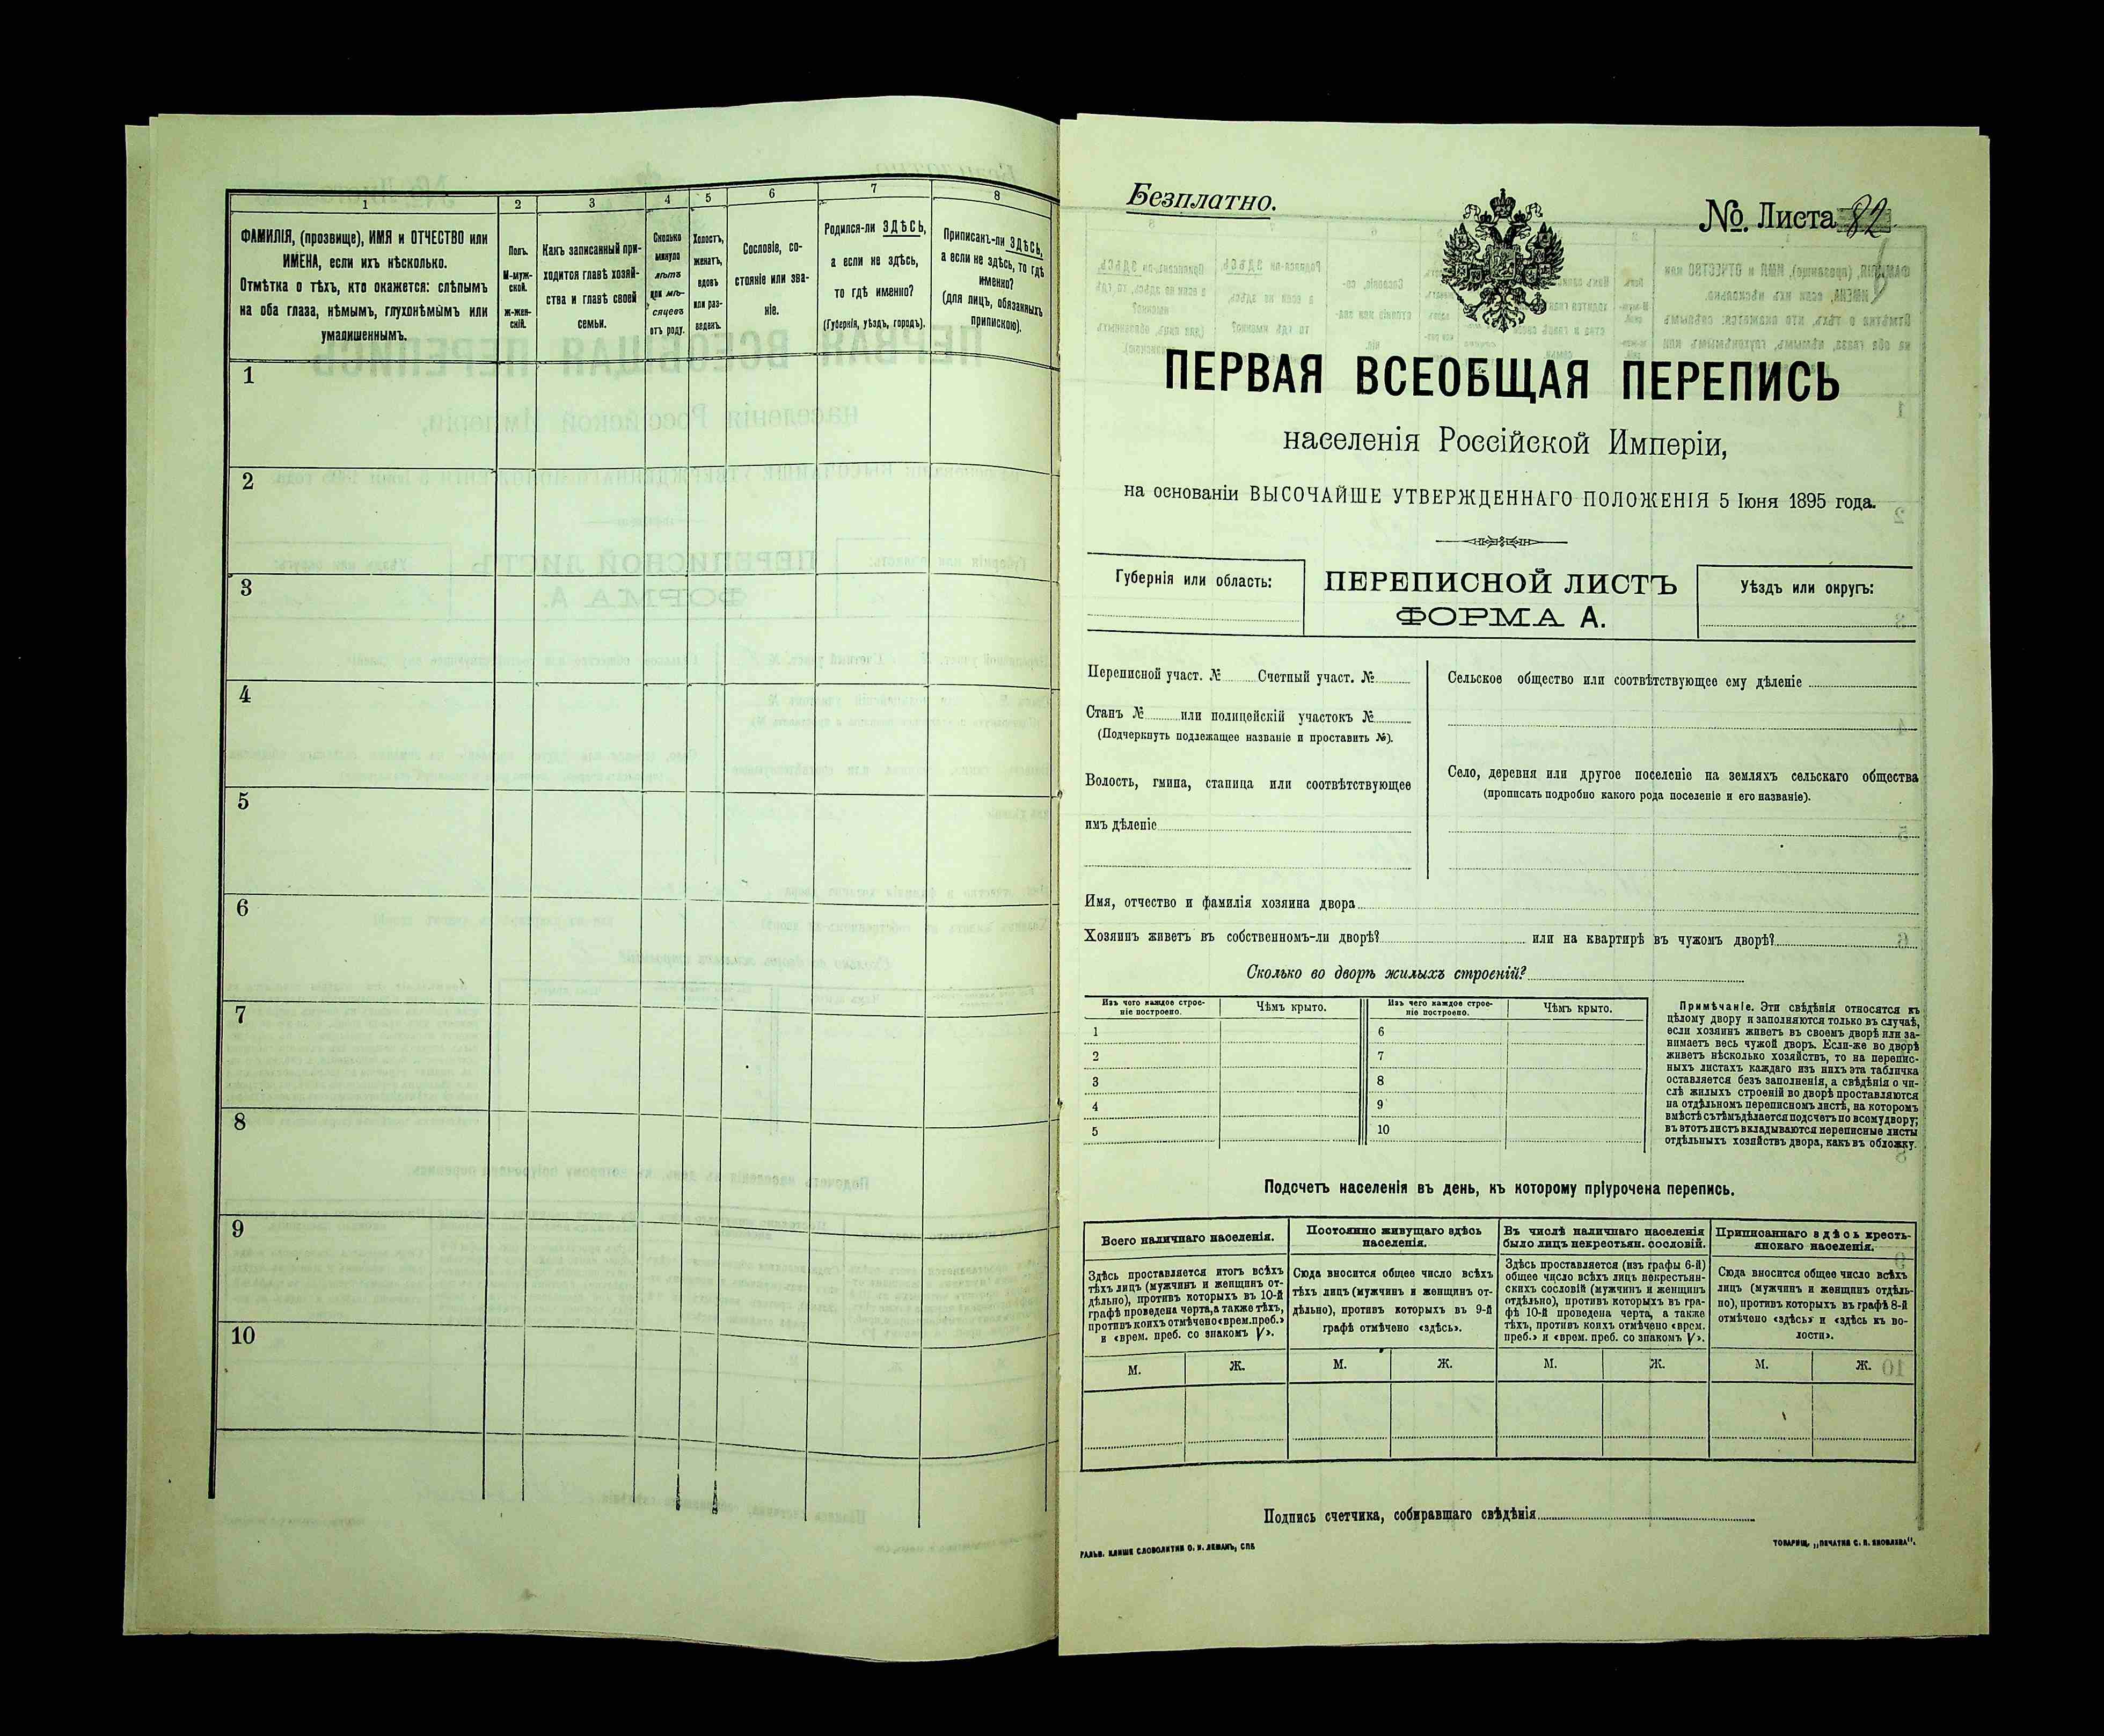 1
2
3
4
5
6
7
8
ФАМИЛІЯ, (прозвище), ИМЯ и ОТЧЕСТВО или
ИМЕНА, если ихъ нѣсколько.
Отмѣтка о тѣхъ, кто окажется: слѣпымъ
на оба глаза, нѣмымъ, глухонѣмымъ или
умалишеннымъ.
Полъ.
М-муж-
ской.
Ж-жен-
скій.
Какъ записанный при-
ходится главѣ хозяй-
ства и главѣ своей
семьи.
Сколько
минуло
лѣтъ
или мѣ-
сяцевъ
отъ роду.
Холостъ,
женатъ,
вдовъ
или раз-
веденъ.
Сословіе, со-
стояніе или зва-
ніе.
Родился-ли ЗДѢСЬ,
а если не здѣсь,
то гдѣ именно?
(Губернія, уѣздъ, городъ).
Приписанъ-ли ЗДѢСЬ,
а если не здѣсь, то гдѣ
именно?
(для лицъ, обязанныхъ
припискою).
1
2
3
4
5
6
7
8
9
10
Безплатно.
№. Листа 82
ПЕРВАЯ ВСЕОБЩАЯ ПЕРЕПИСЬ
населенія Россійской Имперіи,
на основаніи ВЫСОЧАЙШЕ УТВЕРЖДЕННАГО ПОЛОЖЕНІЯ 5 Іюня 1895 года.
Губернія или область:
ПЕРЕПИСНОЙ ЛИСТЪ
ФОРМА А.
Уѣздъ или округъ:
Переписной участ. № Счетный участ. №
Станъ № или полицейскій участокъ №
(Подчеркнуть подлежащее названіе и проставить №).
Волость, гмина, станица или соотвѣтствующее
имъ дѣленіе
Сельское общество или соотвѣтствующее ему дѣленіе
Село, деревня или другое поселеніе на земляхъ сельскаго общества
(прописать подробно какого рода поселеніе и его названіе).
Имя, отчество и фамилія хозяина двора
Хозяинъ живетъ въ собственномъ-ли дворѣ? или на квартирѣ въ чужомъ дворѣ?
Сколько во дворѣ жилыхъ строеній?
Изъ чего каждое строе-
ніе построено.
Чѣмъ крыто.
Изъ чего каждое строе-
ніе построено.
Чѣмъ крыто.
1
2
3
4
5
6
7
8
9
10
Примѣчаніе. Эти свѣдѣнія относятся къ
цѣлому двору и заполняются только въ случаѣ,
если хозяинъ живетъ въ своемъ дворѣ или за-
нимаетъ весь чужой дворъ. Если-же во дворѣ
живетъ нѣсколько хозяйствъ, то на перепис-
ныхъ листахъ каждаго изъ нихъ эта табличка
оставляется безъ заполненія, а свѣдѣнія о чи-
слѣ жилыхъ строеній во дворѣ проставляются
на отдѣльномъ переписномъ листѣ, на которомъ
вмѣстѣ съ тѣмъ дѣлается подсчетъ по всему двору;
въ этотъ листъ вкладываются переписные листы
отдѣльныхъ хозяйствъ двора, какъ въ обложку.
Подсчетъ населенія въ день, къ которому пріурочена перепись.
Всего наличнаго населенія.
Постоянно живущаго здѣсь
населенія.
Въ числѣ наличнаго населенія
было лицъ некрестьян. сословій.
Приписаннаго здѣсь кресть-
янскаго населенія.
Здѣсь проставляется итогъ всѣхъ
тѣхъ лицъ (мужчинъ и женщинъ от-
дѣльно), противъ которыхъ въ 10-й
графѣ проведена черта, а также тѣхъ,
противъ коихъ отмѣчено «врем. преб.»
и «врем. преб. со знакомъ V».
Сюда вносится общее число всѣхъ
тѣхъ лицъ (мужчинъ и женщинъ от-
дѣльно), противъ которыхъ въ 9-й
графѣ отмѣчено «здѣсь».
Здѣсь проставляется (изъ графы 6-й)
общее число всѣхъ лицъ некрестьян-
скихъ сословій (мужчинъ и женщинъ
отдѣльно), противъ которыхъ въ гра-
фѣ 10-й проведена черта, а также
тѣхъ, противъ коихъ отмѣчено «врем.
преб.» и «врем. преб. со знакомъ V».
Сюда вносится общее число всѣхъ
лицъ (мужчинъ и женщинъ отдѣль-
но), противъ которыхъ въ графѣ 8-й
отмѣчено «здѣсь» и «здѣсь къ во-
лости».
М.
Ж.
М.
Ж.
М.
Ж.
М.
Ж.
Подпись счетчика, собиравшаго свѣдѣнія
ГАЛЬВ. КЛИШЕ СЛОВОЛИТНИ О. И. ЛЕМАНЪ, СПБ
ТОВАРИЩ. „ПЕЧАТНЯ С. П. ЯКОВЛЕВА“.